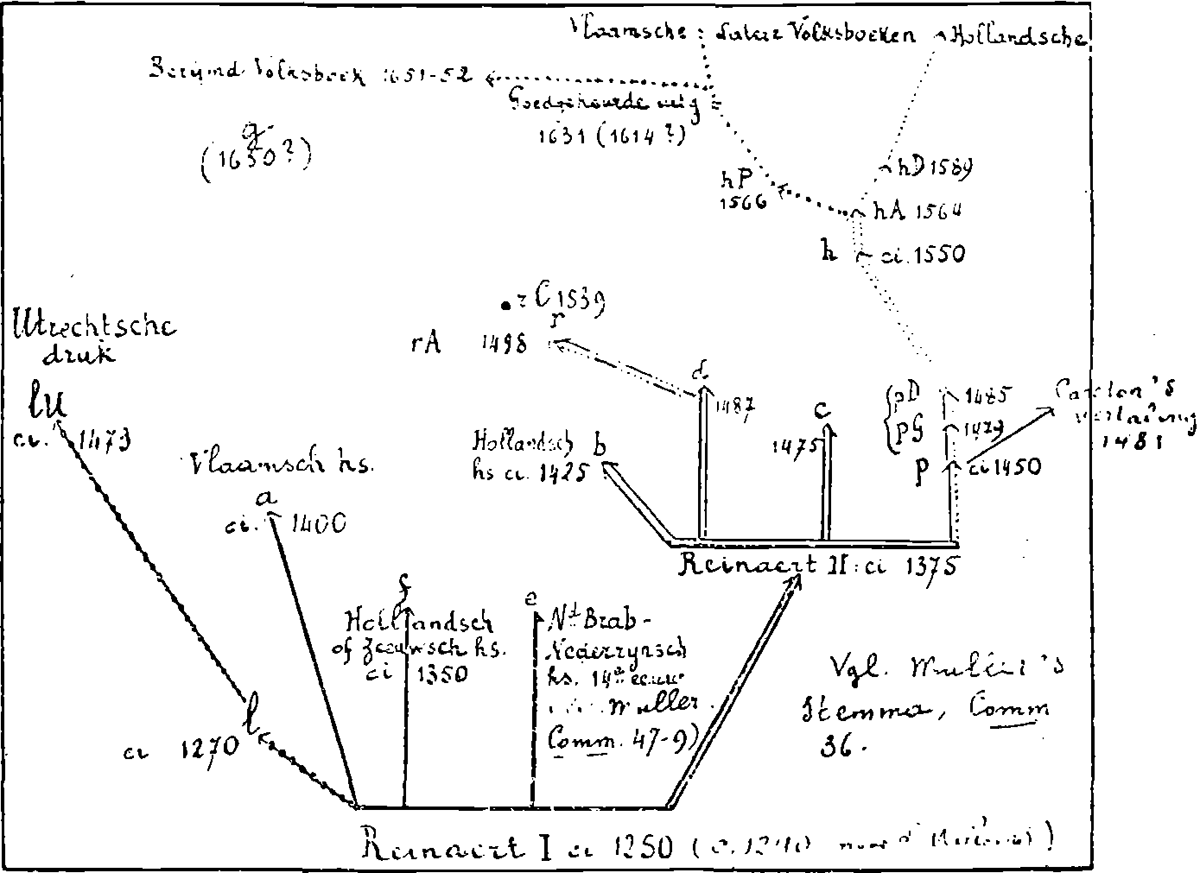 Vlaamsche
Latere Volksboeken
Hollandsche
Berijmd Volksboek 1651-52
Goedgekeurde uitg
1631 (1614?)
g
(1650?)
hP
1566
hD 1589
hA 1564
h
ci. 1550
rC 1539
r
rA 1498
Utrechtsche
druk
lu
ci. 1473
d
1487
c
1475
{pD 1485
{pG 1479
p ci 1450
Caxton's
vertaling
1481
Hollandsch
hs ci. 1425
b
Vlaamsch hs.
a
ci. 1400
Reinaert II: ci 1375
f
Hollandsch
of Zeeuwsch hs.
ci 1350
e
Nd Brab-
Nederrynsch
hs. 14de eeuw
Muller
Comm. 47-9)
Vgl. Muller's
Stemma, Comm
36.
l
ci 1270
Reinaert I ci 1250 (